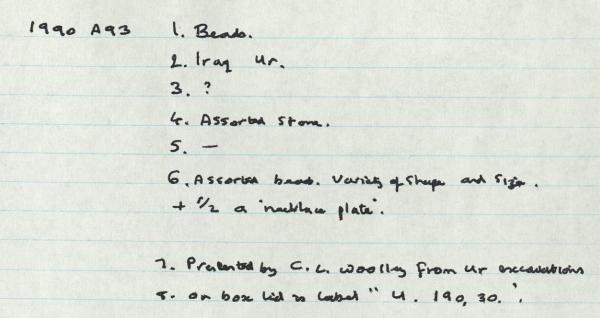 1990 A93 1. Beads.
2. Iraq Ur.
3. ?
4. Assorted stone.
5. —
6. Assorted beads. Variety of shape and size.
+ 1/2 a "necklace plate".
7. Presented by C. L. Woolley from Ur excavations
8. On box lid is label "U. 190, 30."